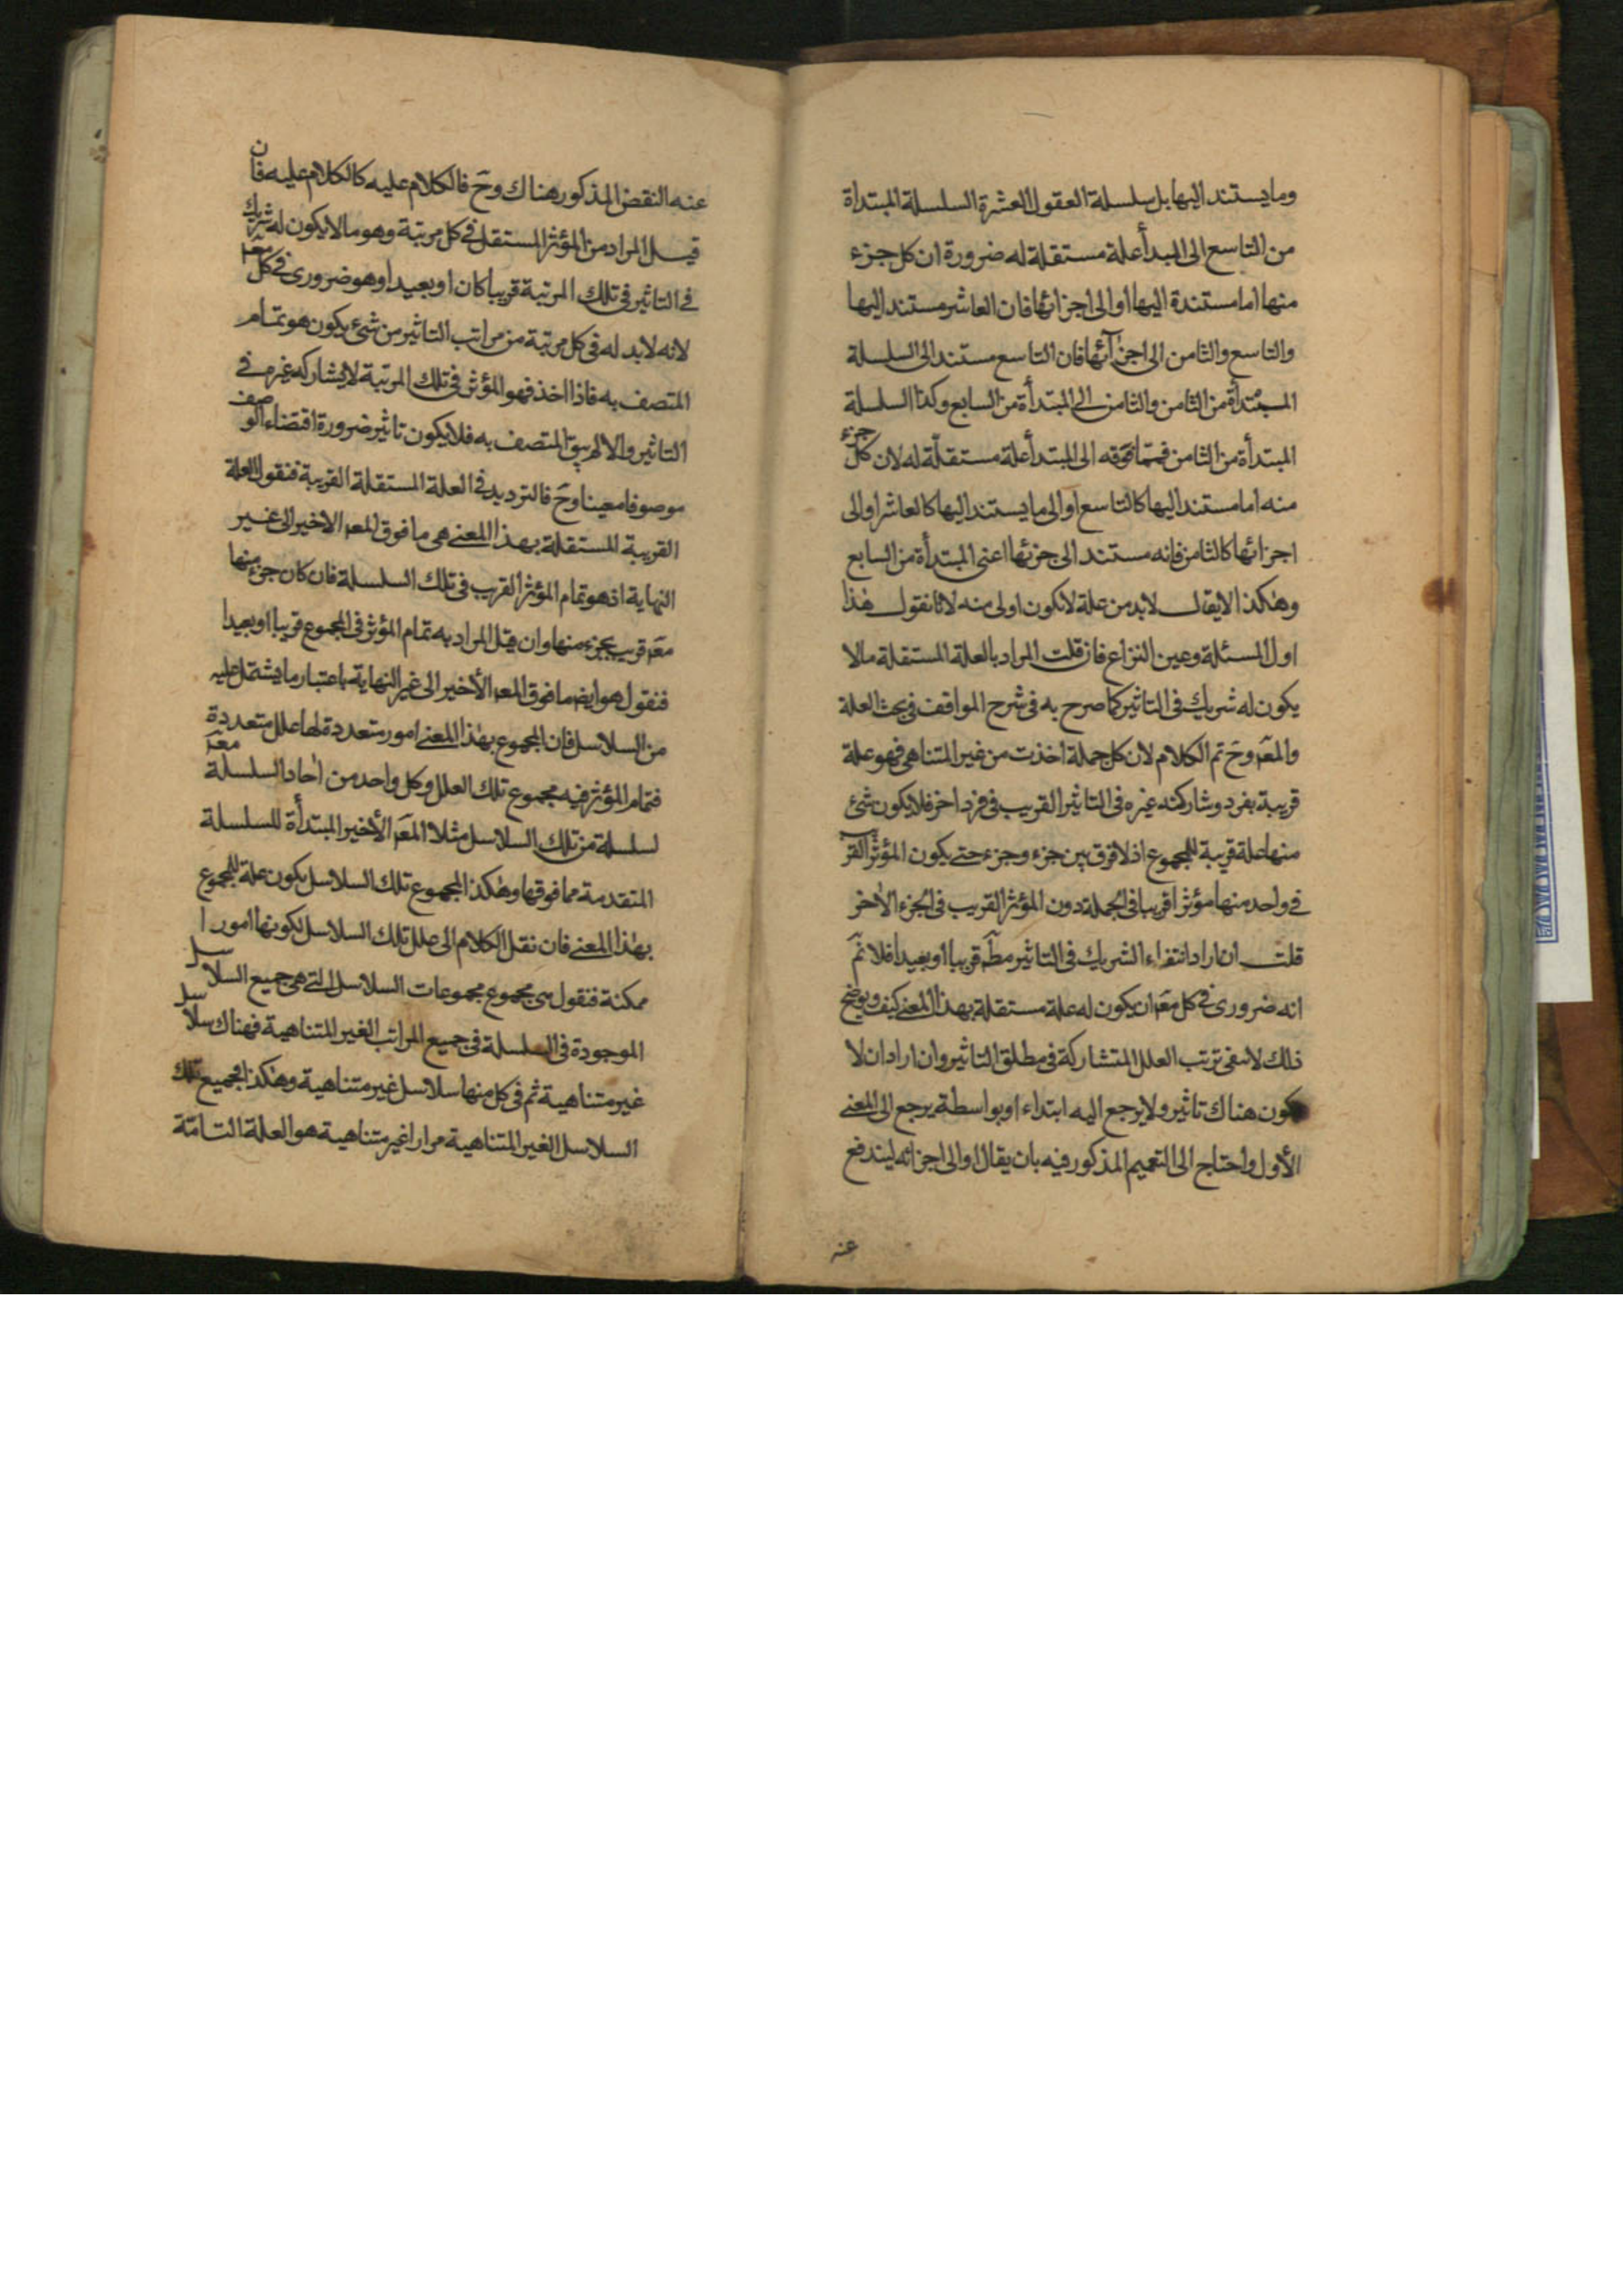 وما يستند اليها بل سلسلة العقول العشرة السلسلة المبتدأة
من التاسع الى المبدأ علة مستقلة له ضرورة ان كل جزء
منها اما مستندة اليها او الى اجزائها فان العاشر مستند اليها
والتاسع والثامن الى اجزآئها فان التاسع مستند الى السلسلة
المبتدأة من الثامن والثامن الى المبتدأة من السابع وكذا السلسلة
المبتدأة من الثامن فما فوقه الى المبتدأ علة مستقلة له لان كل جزء
منه اما مستند اليها كالتاسع او الى ما يستند اليها كالعاشر او الى
اجزائها كالثامن فانه مستند الى جزئها اعنى المبتدأة من السابع
وهكذا لا يقال لابد من علة لا يكون اولى منه لانا نقول هذا
اول المسئلة وعين النزاع فان قلت المراد بالعلة المستقلة مالا
يكون له شريك فى التاثير كما صرح به فى شرح المواقف فى بحث العلة
والمعه وح تم الكلام لان كل جملة اخذت من غير المتناهى فهو علة
قريبة بفرد وشاركته غيره فى التاثير القريب فى فرد اخر فلا يكون شئ
منها علة قريبة للمجموع اذ لا فرق بين جزء وجزء حتى يكون المؤثر القر
فى واحد منها مؤثرا قريبا فى الجملة دون المؤثر القريب فى الجزء الاخر
قلت ان اراد انتفاء الشريك فى التاثير مطه قريبا او بعيدا فلا نم
انه ضرورى فى كل معه ان يكون له علة مستقلة بهذا المعنى كيف ويوضح
ذلك لا ينفى ترتب العلل المتشاركة فى مطلق التاثير وان اراد ان لا
يكون هناك تاثير ولا يرجع اليه ابتداء او بواسطة يرجع الى المعنى
الأول واحتاج الى التعميم المذكور فيه بان يقال او الى اجزائه ليندفع
عنه
عنه النقض المذكور هناك وح فالكلام عليه كالكلام عليه فان
قيل المراد من المؤثر المستقل فى كل مرتبة وهو مالا يكون له شريك
فى التاثير فى تلك المرتبة قريبا كان او بعيدا وهو ضرورى فى كل معه
لانه لابد له فى كل مرتبة من مراتب التاثير من شئ يكون هو تمام
المتصف به فاذا اخذ فهو المؤثر فى تلك المرتبة لا يشاركه غيره فى
التاثير والا لم يبق المتصف به فلا يكون تاثير ضرورة اقتضاء الوصف
موصوفا معينا وح فالترديد فى العلة المستقلة القريبة فنقول العلة
القريبة المستقلة بهذا المعنى هى ما فوق المعه الاخير الى غير
النهاية اذ هو تمام المؤثر القريب فى تلك السلسلة فان كان جزء منها
معه قريب بجزء منها وان قيل المراد به تمام المؤثر فى المجموع قريبا او بعيدا
فنقول هو ايضه ما فوق المعه الأخير الى غير النهاية باعتبار ما يشتمل عليه
من السلاسل فان المجموع بهذا المعنى امور متعددة لها علل متعددة
فتمام المؤثر فيه مجموع تلك العلل وكل واحد من احاد السلسلة معه
لسلسلة من تلك السلاسل مثلا المعه الأخير المبتدأة للسلسلة
المتقدمة مما فوقها وهكذا المجموع تلك السلاسل يكون علة للمجموع
بهذا المعنى فان نقل الكلام الى علل تلك السلاسل لكونها امورا
ممكنة فنقول هى مجموع مجموعات السلاسل التى هى جميع السلاسل
الموجودة فى السلسلة فى جميع المراتب الغير المتناهية فهناك سلاسل
غير متناهية ثم فى كل منها سلاسل غير متناهية وهكذا فجميع تلك
السلاسل الغير المتناهية مرارا غير متناهية هو العلة التامّة